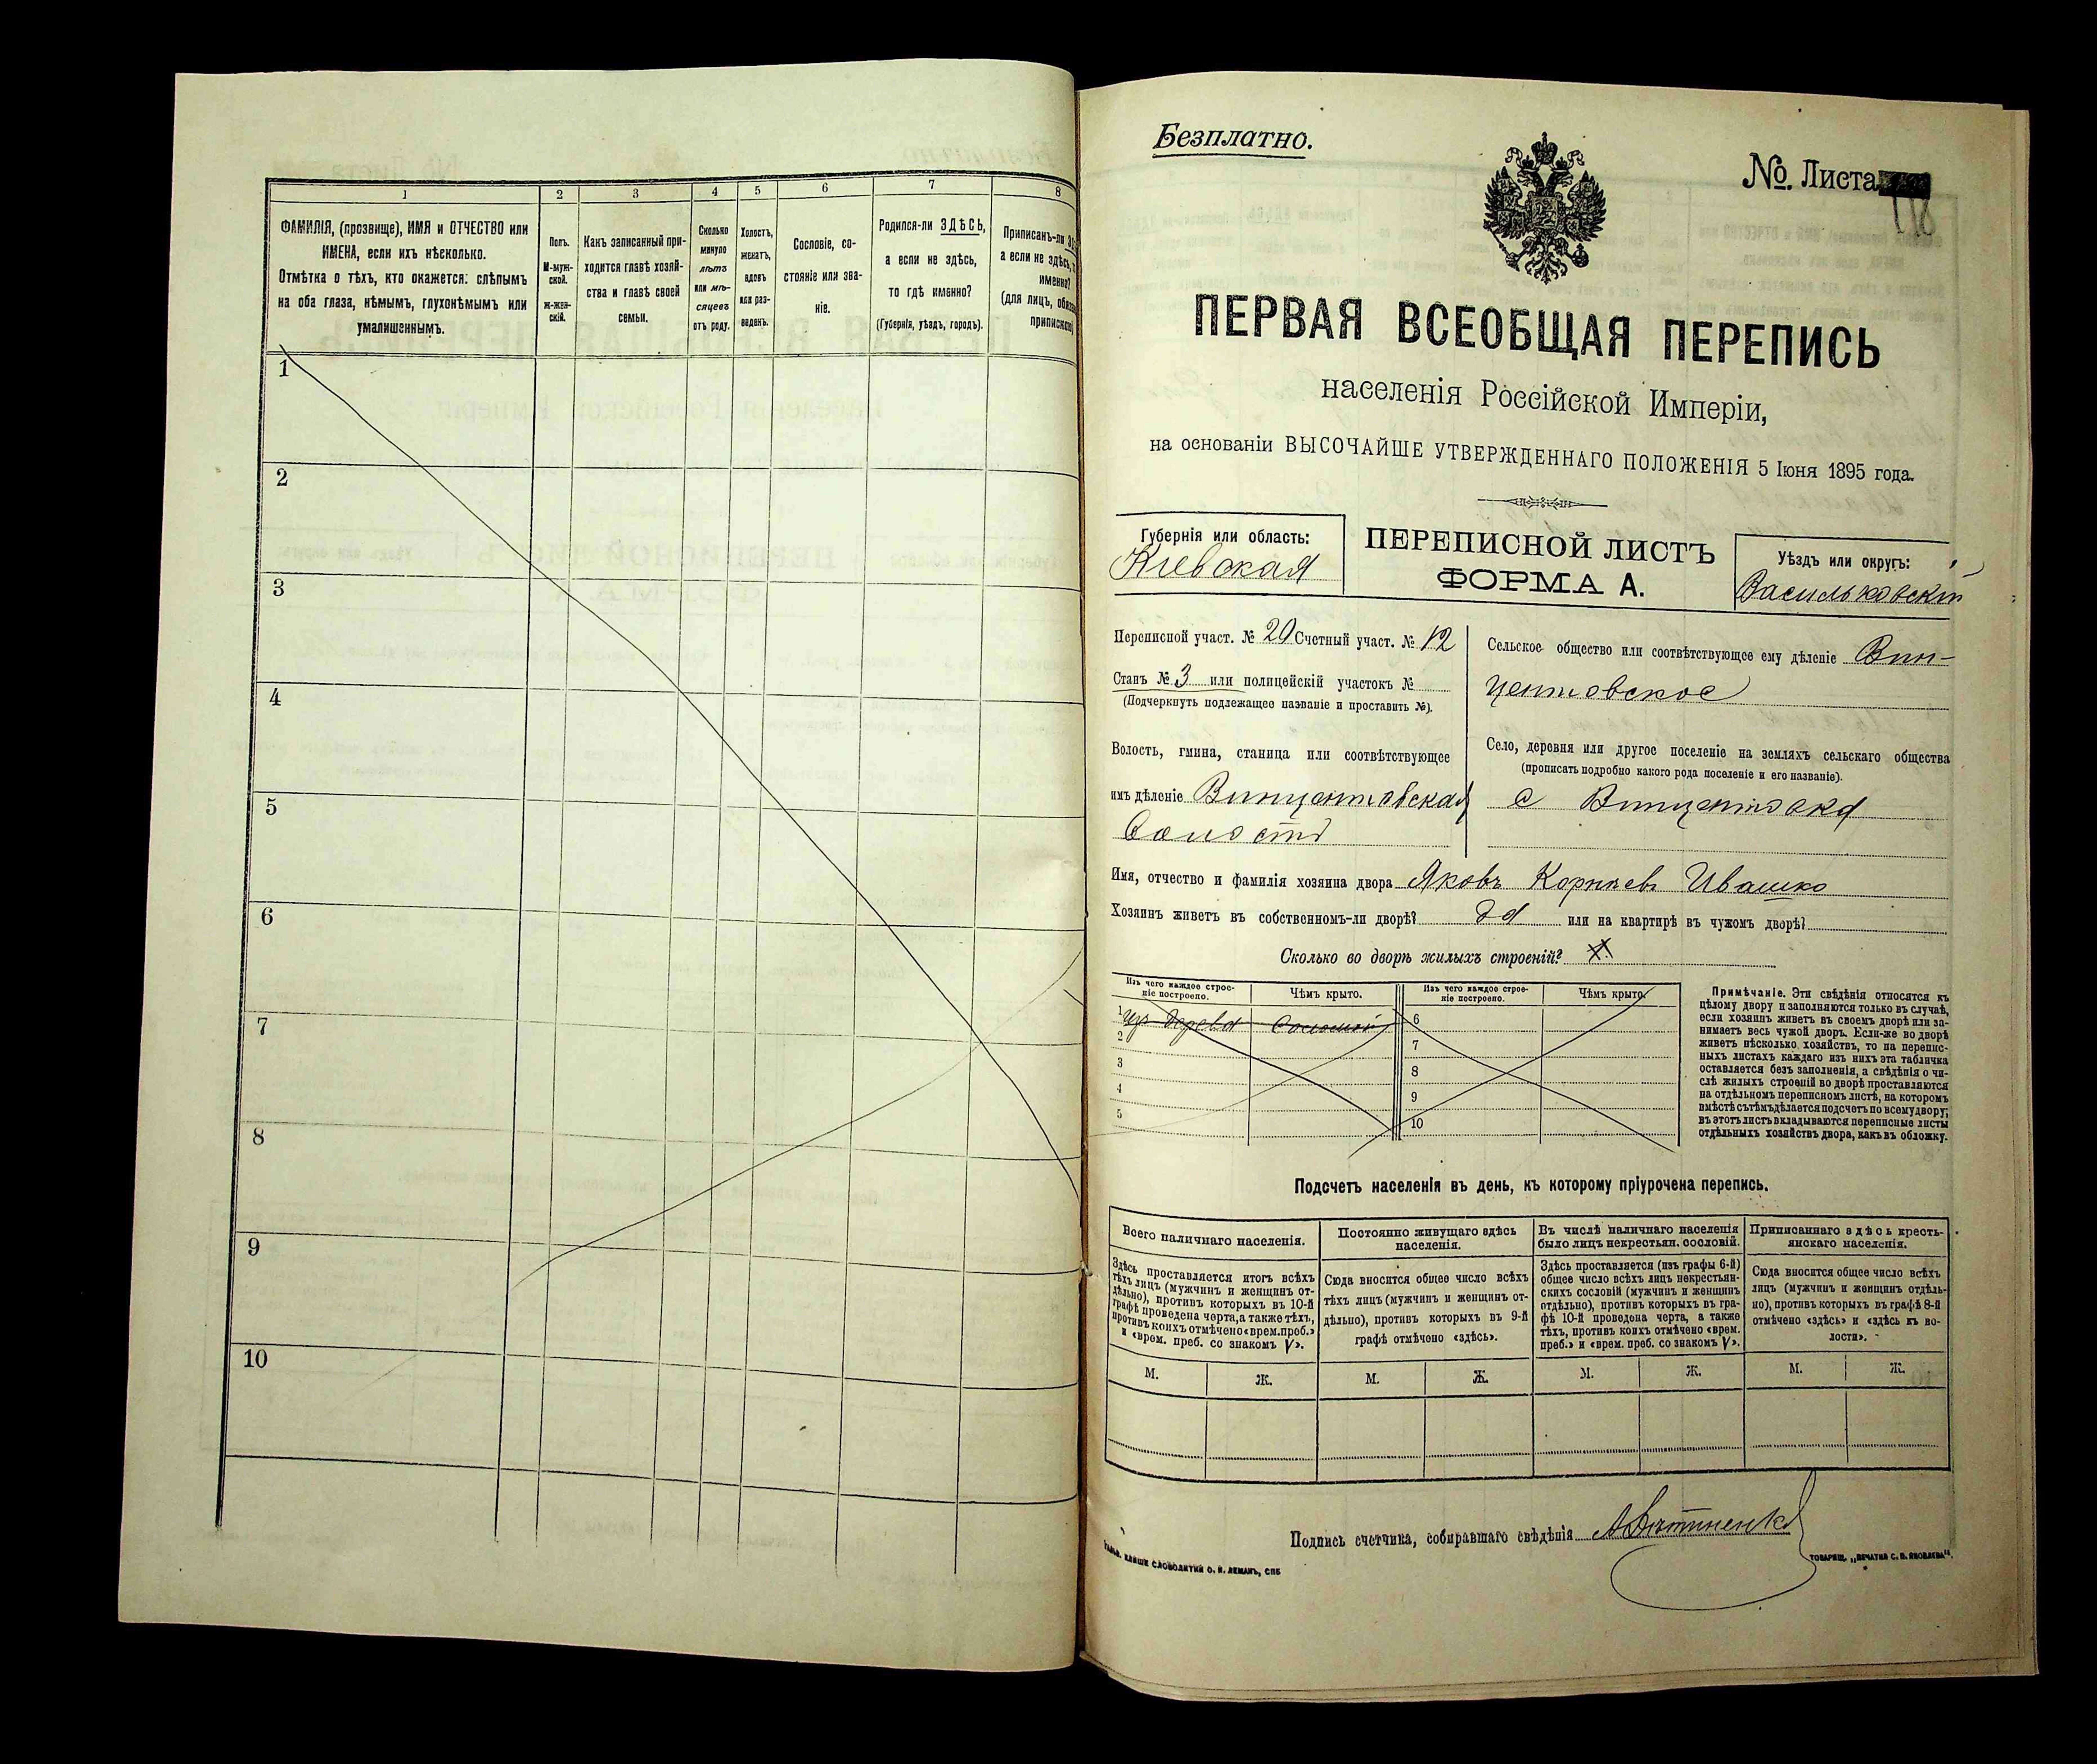 1
2
3
4
5
6
7
8
ФАМИЛІЯ, (прозвище), ИМЯ и ОТЧЕСТВО или
ИМЕНА, если ихъ нѣсколько.
Отмѣтка о тѣхъ, кто окажется: слѣпымъ
на оба глаза, нѣмымъ, глухонѣмымъ или
умалишеннымъ.
Полъ.
М-муж-
ской.
ж-жен-
скій.
Какъ записанный при-
ходится главѣ хозяй-
ства и главѣ своей
семьи.
Сколько
минуло
лѣтъ
или мѣ-
сяцевъ
отъ роду.
Холостъ,
женатъ,
вдовъ
или раз-
веденъ.
Сословіе, со-
стояніе или зва-
ніе.
Родился-ли ЗДѢСЬ,
а если не здѣсь,
то гдѣ именно?
(Губернія, уѣздъ, городъ).
Приписанъ-ли
а если не здѣсь,
именно?
(для лицъ,
припискою)
1
2
3
4
5
6
7
8
9
10
Безплатно.
№. Листа
118
ПЕРВАЯ ВСЕОБЩАЯ ПЕРЕПИСЬ
населенія Россійской Имперіи,
на основаніи ВЫСОЧАЙШЕ УТВЕРЖДЕННАГО ПОЛОЖЕНІЯ 5 Іюня 1895 года.
Губернія или область:
Кіевская
ПЕРЕПИСНОЙ ЛИСТЪ
ФОРМА А.
Уѣздъ или округъ:
Васильковскій
Переписной участ. № 20 Счетный участ. № 12
Станъ № 3 или полицейскій участокъ №
(Подчеркнуть подлежащее названіе и проставить №).
Волость, гмина, станица или соотвѣтствующее
имъ дѣленіе Винцентовская
волость
Сельское общество или соотвѣтствующее ему дѣленіе Вин-
центовское
Село, деревня или другое поселеніе на земляхъ сельскаго общества
(прописать подробно какого рода поселеніе и его названіе).
с Винцентовка
Имя, отчество и фамилія хозяина двора Яковъ Корніевъ Ивашко
Хозяинъ живетъ въ собственномъ-ли дворѣ? да или на квартирѣ въ чужомъ дворѣ?
Сколько во дворѣ жилыхъ строеній?
Изъ чего каждое строе-
ніе построено.
Чѣмъ крыто.
Изъ чего каждое строе-
ніе построено.
Чѣмъ крыто.
1 изъ дерева соломой
2
3
4
5
6
7
8
9
10
Примѣчаніе. Эти свѣдѣнія относятся къ
цѣлому двору и заполняются только въ случаѣ,
если хозяинъ живетъ въ своемъ дворѣ или за-
нимаетъ весь чужой дворъ. Если-же во дворѣ
живетъ нѣсколько хозяйствъ, то на перепис-
ныхъ листахъ каждаго изъ нихъ эта табличка
оставляется безъ заполненія, а свѣдѣнія о чи-
слѣ жилыхъ строеній во дворѣ проставляются
на отдѣльномъ переписномъ листѣ, на которомъ
вмѣстѣ съ тѣмъ дѣлается подсчетъ по всему двору;
въ этотъ листъ вкладываются переписные листы
отдѣльныхъ хозяйствъ двора, какъ въ обложку.
Подсчетъ населенія въ день, къ которому пріурочена перепись.
Всего наличнаго населенія.
Здѣсь проставляется итогъ всѣхъ
тѣхъ лицъ (мужчинъ и женщинъ от-
дѣльно), противъ которыхъ въ 10-й
графѣ проведена черта, а также тѣхъ,
противъ коихъ отмѣчено «врем. преб.»
и «врем. преб. со знакомъ V».
Постоянно живущаго здѣсь
населенія.
Сюда вносится общее число всѣхъ
тѣхъ лицъ (мужчинъ и женщинъ от-
дѣльно), противъ которыхъ въ 9-й
графѣ отмѣчено «здѣсь».
Въ числѣ наличнаго населенія
было лицъ некрестьян. сословій.
Здѣсь проставляется (изъ графы 6-й)
общее число всѣхъ лицъ некрестьян-
скихъ сословій (мужчинъ и женщинъ
отдѣльно), противъ которыхъ въ гра-
фѣ 10-й проведена черта, а также
тѣхъ, противъ коихъ отмѣчено «врем.
преб.» и «врем. преб. со знакомъ V».
Приписаннаго здѣсь кресть-
янскаго населенія.
Сюда вносится общее число всѣхъ
лицъ (мужчинъ и женщинъ отдѣль-
но), противъ которыхъ въ графѣ 8-й
отмѣчено «здѣсь» и «здѣсь къ во-
лости».
М. Ж. М. Ж. М. Ж. М. Ж.
Подпись счетчика, собиравшаго свѣдѣнія
КЛИШЕ СЛОВОЛИТНИ О. И. ЛЕМАНЪ, СПБ
ТОВАРИЩ. „ПЕЧАТНЯ С. П. ЯКОВЛЕВА".